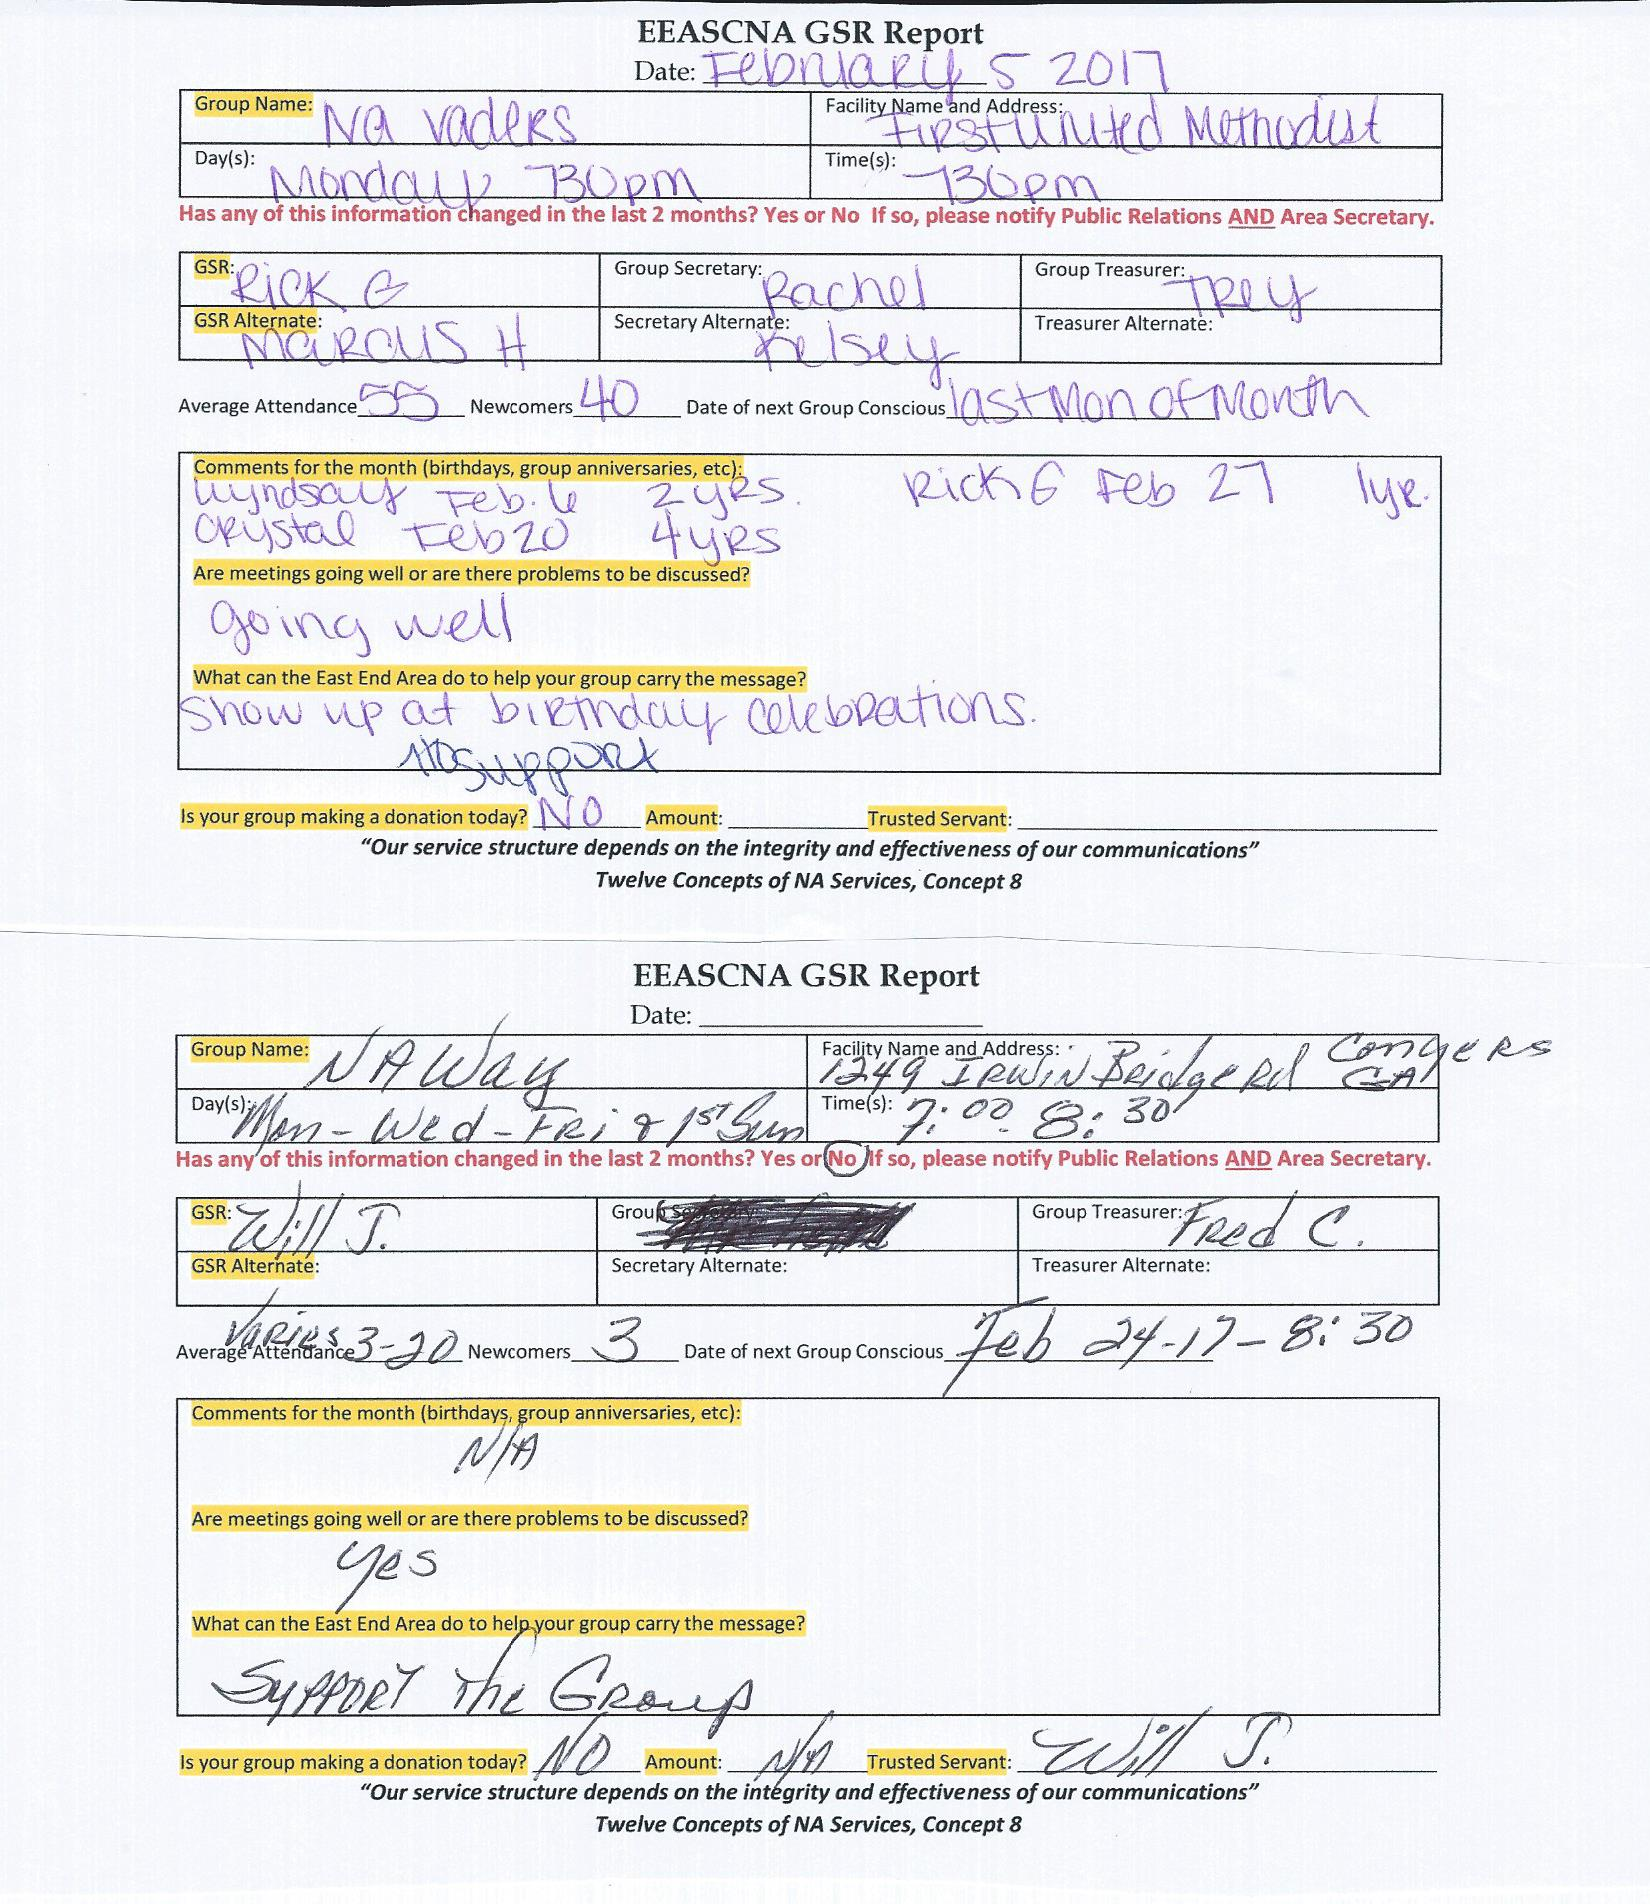 EEASCNA GSR Report
Date: February 5 2017
Group Name: NA vaders Facility Name and Address: First United Methodist
Day(s): Monday 730pm Time(s): 730pm
Has any of this information changed in the last 2 months? Yes or No If so, please notify Public Relations AND Area Secretary.
GSR: Rick G Group Secretary: Rachel Group Treasurer: Trey
GSR Alternate: Marcus H Secretary Alternate: Kelsey Treasurer Alternate:
Average Attendance 55 Newcomers 40 Date of next Group Conscious last Mon of Month
Comments for the month (birthdays, group anniversaries, etc):
Lyndsay Feb. 6 2 yrs. Rick G Feb 27 1yr.
Crystal Feb 20 4 yrs
Are meetings going well or are there problems to be discussed?
going well
What can the East End Area do to help your group carry the message?
Show up at birthday celebrations.
support
Is your group making a donation today? NO Amount: Trusted Servant:
“Our service structure depends on the integrity and effectiveness of our communications”
Twelve Concepts of NA Services, Concept 8
EEASCNA GSR Report
Date:
Group Name: NA Way Facility Name and Address: 1249 Irwin Bridge Rd Conyers GA
Day(s): Mon - Wed - Fri & 1st Sun Time(s): 7:00 8:30
Has any of this information changed in the last 2 months? Yes or No If so, please notify Public Relations AND Area Secretary.
GSR: Will J. Group Group Treasurer: Fred C.
GSR Alternate: Secretary Alternate: Treasurer Alternate:
Average Attendance Varies 3-20 Newcomers 3 Date of next Group Conscious Feb 24-17 - 8:30
Comments for the month (birthdays, group anniversaries, etc):
N/A
Are meetings going well or are there problems to be discussed?
Yes
What can the East End Area do to help your group carry the message?
Support the Group
Is your group making a donation today? NO Amount: N/A Trusted Servant: Will J.
“Our service structure depends on the integrity and effectiveness of our communications”
Twelve Concepts of NA Services, Concept 8